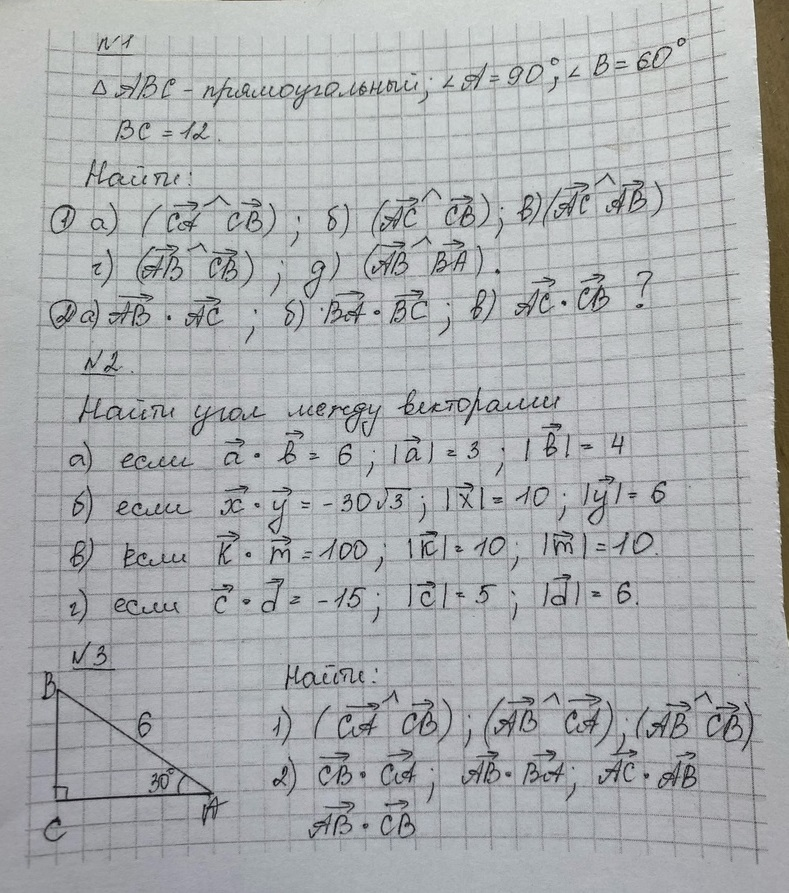 №1
△ABC - прямоугольный; ∠A = 90°; ∠B = 60°
BC = 12.
Найти:
① а) (CA⃗ ^ CB⃗) ; б) (AC⃗ ^ CB⃗) ; в) (AC⃗ ^ AB⃗)
г) (AB⃗ ^ CB⃗) ; д) (AB⃗ ^ BA⃗).
② а) AB⃗ · AC⃗ ; б) BA⃗ · BC⃗ ; в) AC⃗ · CB⃗ ?
№2.
Найти угол между векторами
а) если a⃗ · b⃗ = 6 ; |a⃗| = 3 ; |b⃗| = 4
б) если x⃗ · y⃗ = -30√3 ; |x⃗| = 10 ; |y⃗| = 6
в) если k⃗ · m⃗ = 100 ; |k⃗| = 10 ; |m⃗| = 10.
г) если c⃗ · d⃗ = -15 ; |c⃗| = 5 ; |d⃗| = 6.
№3
B
6
30°
C
A
Найти:
1) (CA⃗ ^ CB⃗) ; (AB⃗ ^ CA⃗) ; (AB⃗ ^ CB⃗)
2) CB⃗ · CA⃗ ; AB⃗ · BA⃗ ; AC⃗ · AB⃗
AB⃗ · CB⃗